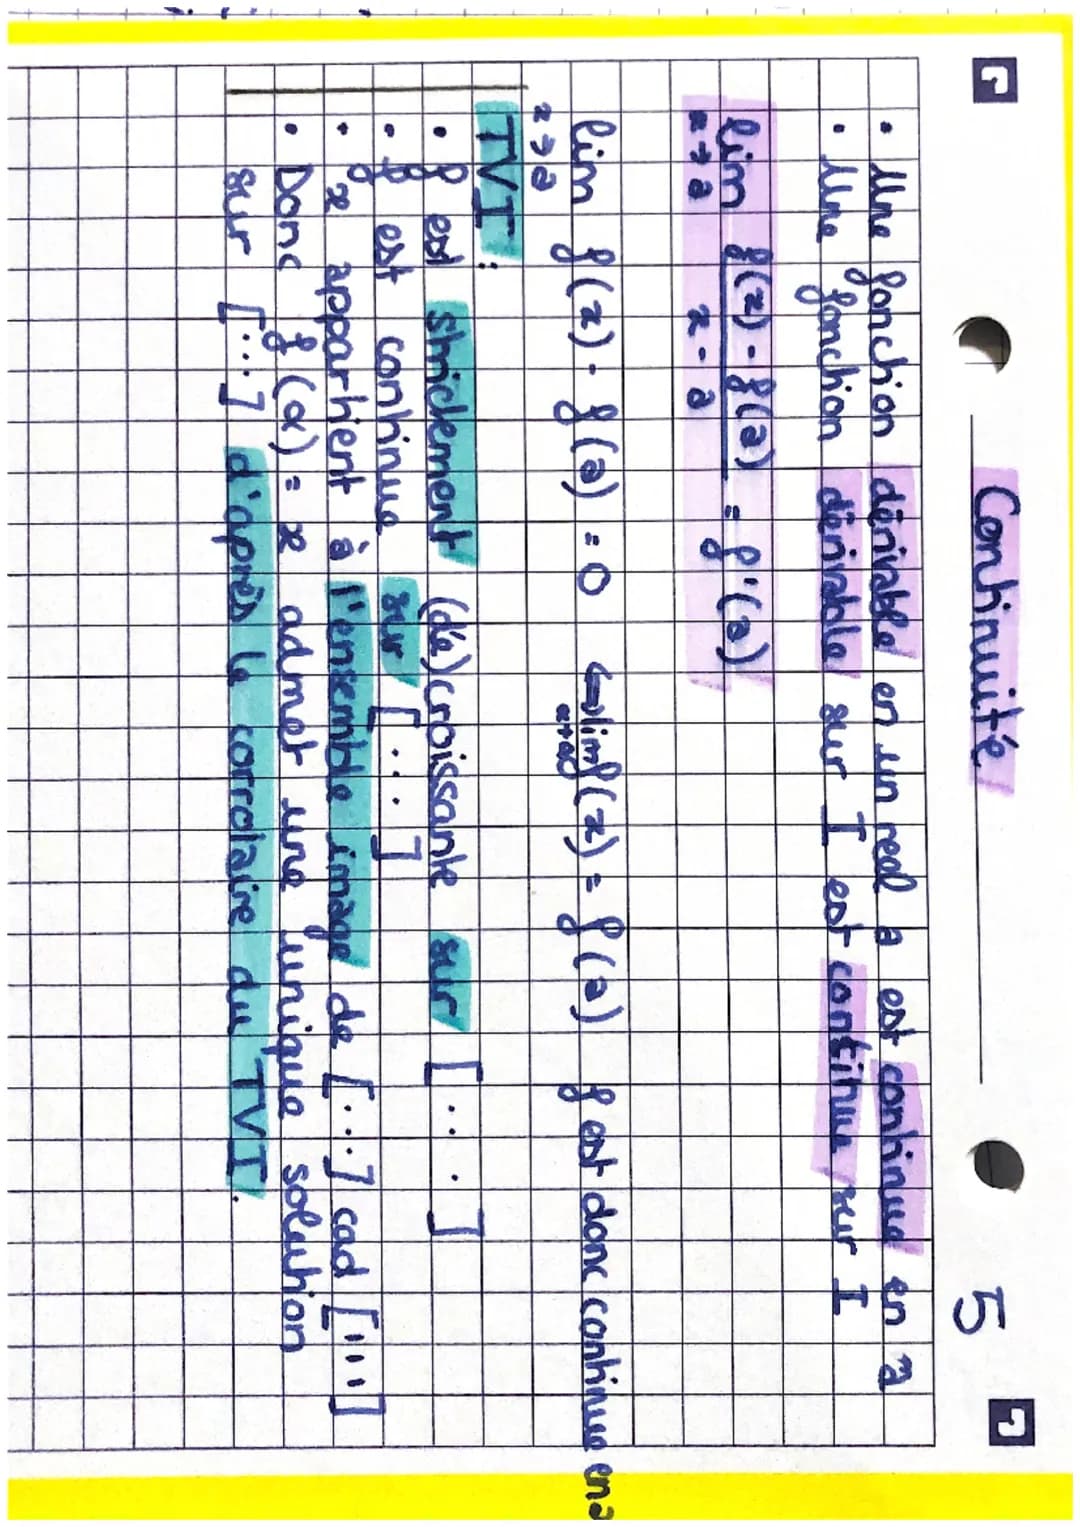 Continuité
5
• Une fonction dérivable en un real a est continue en a
• Une fonction dérivable sur I est continue sur I
lim f(x) - f(a) = f'(a)
x→a x - a
lim f(x) - f(a) = 0 ↪ lim f(x) = f(a) f est donc continue en a
x→a
TVI :
• f est strictement (dé)croissante sur [....]
• f est continue sur [...]
• x appartient à l'ensemble image de [...] cad ["']
• Donc f(α) = x admet une unique solution
sur [...] d'après le corrolaire du TVI.